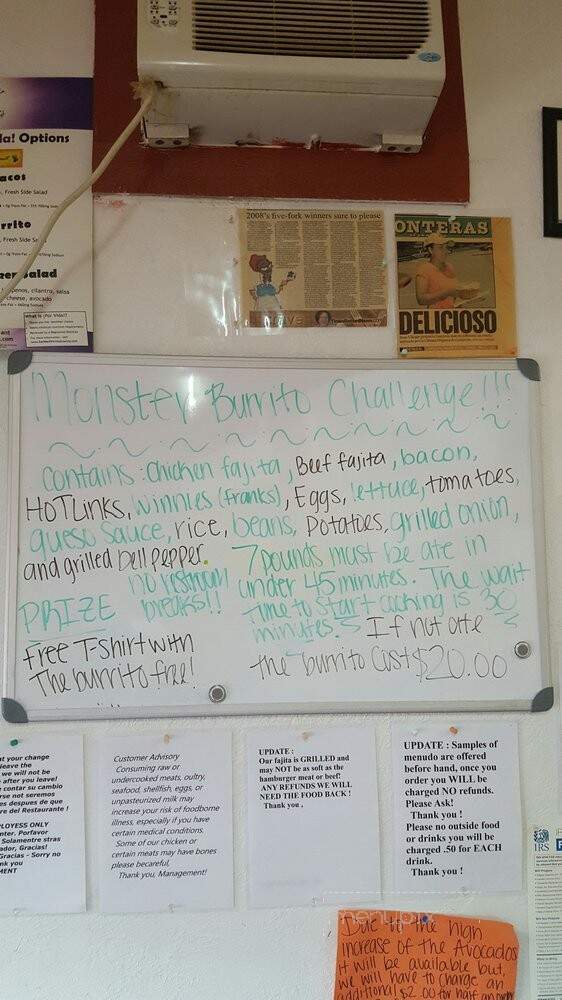 la! Options
acos
, Fresh Side Salad
rrito
, Fresh Side
Salad
penos, cilantro, salsa
cheese, avocado
What is ¡Por Vida!?
2008's five-fork winners sure to please
ONTERAS
DELICIOSO
Monster Burrito Challenge!!!
Contains: Chicken fajita, Beef fajita, bacon,
HOTLINKS, winnies (franks), Eggs, lettuce, tomatoes,
queso sauce, rice, beans, Potatoes, grilled onion,
and grilled bell pepper.
7 pounds must be ate in
under 45 minutes. The wait
Time to start cooking is 30
minutes.
If not ate
the burrito cost $20.00
no restroom
breaks!!
PRIZE
free T-shirt with
The burrito free!
at your change
leave the
we will not be
after you leave!
e contar su cambio
rse not seremos
es despues de que
re del Restaurante !
PLOYESS ONLY
nter, Porfavor
Solamentre stras
ador, Gracias!
Gracias - Sorry no
nk you
MENT
Customer Advisory
Consuming raw or
undercooked meats, oultry,
seafood, shellfish, eggs, or
unpasteurized milk may
increase your risk of foodborne
illness, especially if you have
certain medical conditions.
Some of our chicken or
certain meats may have bones
please becareful,
Thank you, Management!
UPDATE :
Our fajita is GRILLED and
may NOT be as soft as the
hamburger meat or beef!
ANY REFUNDS WE WILL
NEED THE FOOD BACK !
Thank you ,
UPDATE : Samples of
menudo are offered
before hand, once you
order you WILL be
charged NO refunds.
Please Ask!
Thank you !
Please no outside food
or drinks you will be
charged .50 for EACH
drink.
Thank you !
IRS
menupix
Due to the high
increase of the Avocados
it will be available but,
we will have to charge an
additional $2.00 for half an